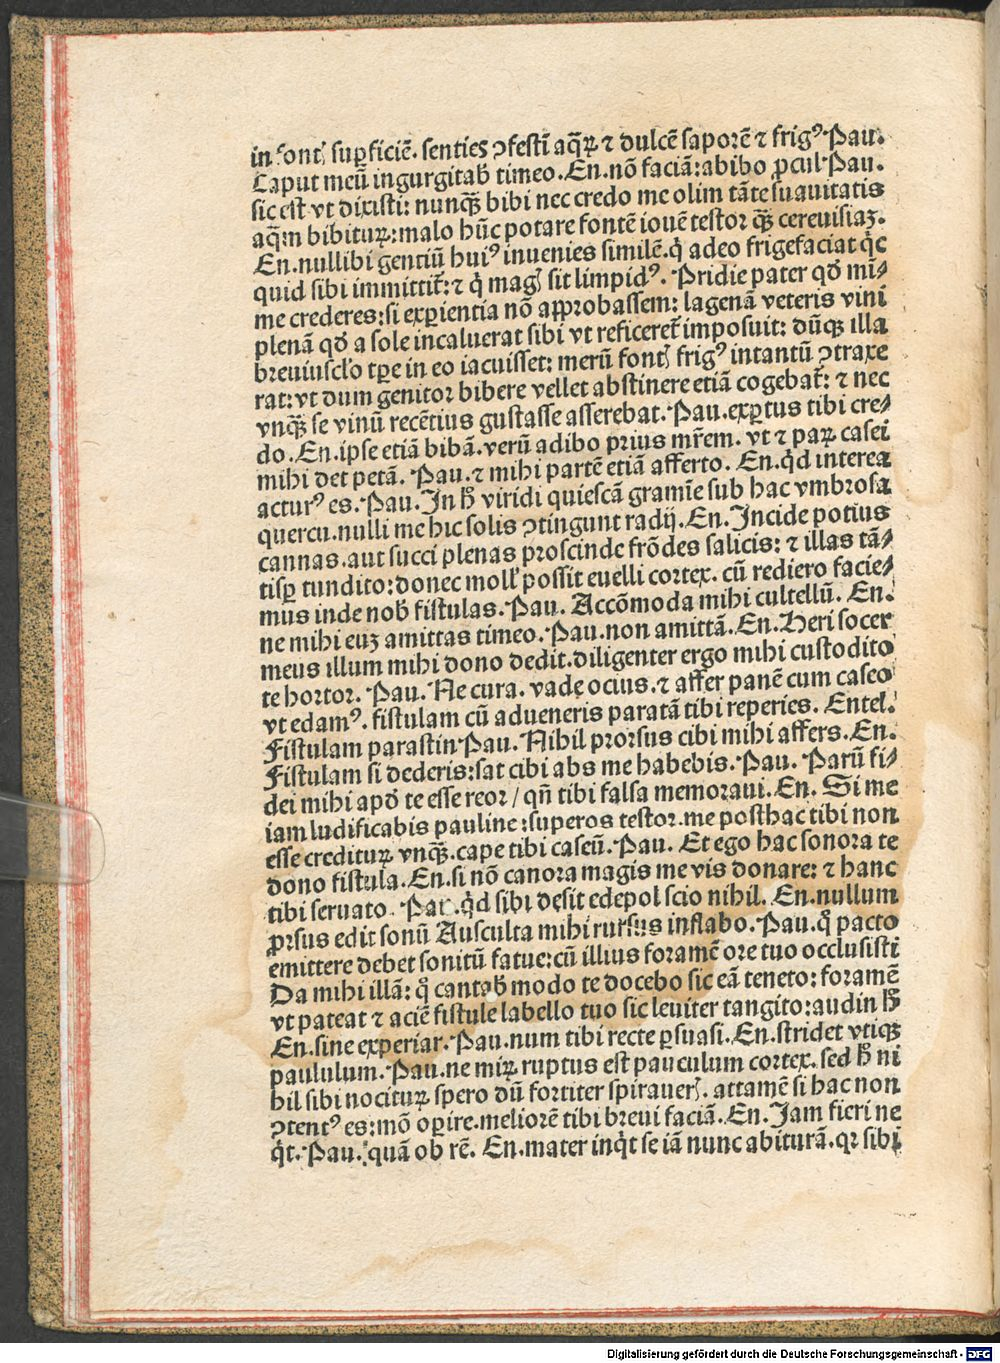 in font҄ suꝑficiē. senties ↄfesti᷑ aq̄ꝝ ⁊ dulcē saporē ⁊ frigꝰ Pau.
Caput meū ingurgitab҄ timeo. En. nō faciā: abibo ꝓcul Pau.
sic est vt dixisti: nunqꝫ bibi nec credo me olim tāte suauitatis
aq̄m bibiturꝝ: malo hūc potare fontē iouē testor qꝫ cereuisiaꝫ.
En. nullibi gentiū huiꝰ inuenies similē. q̇ adeo frigefaciat q̇c
quid sibi immittit᷑: ⁊ q̇ mag҄ sit limpidꝰ. Pridie pater qd̛ mi⸗
me crederes: si exꝑientia nō aꝓprobassem: lagenā veteris vini
plenā qd̛ a sole incaluerat sibi vt reficeret᷑ imposuit: dūqꝫ illa
breuiusclo tꝑe in eo iacuisset: merū font҄ frigꝰ intantū ↄtraxe
rat: vt dum genitor bibere vellet abstinere etiā cogebat᷑: ⁊ nec
vnqꝫ se vinū recētius gustasse asserebat. Pau. exꝑtus tibi cre⸗
do. En. ipse etiā bibā. verū adibo prius mr̄em. vt ⁊ paꝝ casei
mihi det petā. Pau. ⁊ mihi partē etiā afferto. En. q̇d interea
acturꝰ es. Pau. In h̛ viridi quiescā gramīe sub hac vmbrosa
quercu. nulli me hic solis ↄtingunt radij. En. Incide potius
cannas. aut succi plenas proscinde frōdes salicis: ⁊ illas tā⸗
tisꝑ tundito: donec moll᷑ possit euelli cortex. cū rediero facie⸗
mus inde nob҄ fistulas. Pau. Accōmoda mihi cultellū. En.
ne mihi euꝫ amittas timeo. Pau. non amittā. En. Heri socer
meus illum mihi dono dedit. diligenter ergo mihi custodito
te hortor. Pau. Ne cura. vade ocius. ⁊ affer panē cum caseo
vt edamꝰ. fistulam cū adueneris paratā tibi reperies. Entel.
Fistulam parastin Pau. Nihil prorsus cibi mihi affers. En.
Fistulam si dederis: sat cibi abs me habebis. Pau. Parū fi⸗
dei mihi apd̛ te esse reor / qn̄ tibi falsa memoraui. En. Si me
iam ludificabis pauline: superos testor. me posthac tibi non
esse crediturꝝ vnqꝫ. cape tibi caseū. Pau. Et ego hac sonora te
dono fistula. En. si nō canora magis me vis donare: ⁊ hanc
tibi seruato. Pau. q̇d sibi desit edepol scio nihil. En. nullum
ꝓrsus edit sonū Ausculta mihi rursus inflabo. Pau. q̊ pacto
emittere debet sonitū fatue: cū illius foramē ore tuo occlusisti
Da mihi illā: q̊ cantab҄ modo te docebo sic eā teneto: foramē
vt pateat ⁊ aciē fistule labello tuo sic leuiter tangito: audin h̛
En. sine experiar. Pau. num tibi recte ꝑsuasi. En. stridet vtiqꝫ
paululum. Pau. ne miꝝ ruptus est pauculum cortex. sed h̛ ni
hil sibi nociturꝝ spero dū fortiter spirauer҄. attamē si hac non
ↄtentꝰ es: mō oꝑire. meliorē tibi breui faciā. En. Jam fieri ne
q̇t. Pau. quā ob rē. En. mater inq̇t se iā nunc abiturā. qꝛ sibi
Digitalisierung gefördert durch die Deutsche Forschungsgemeinschaft - DFG